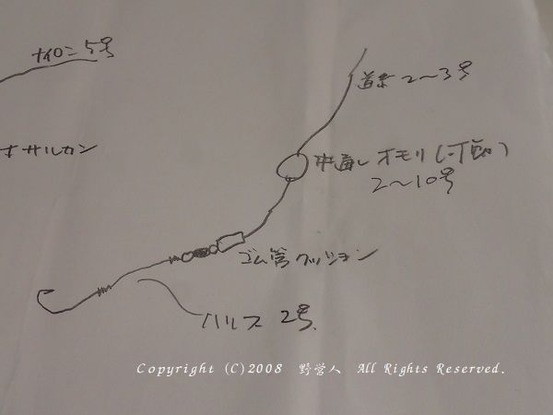 ナイロン 5号
道糸 2〜3号
ホサルカン
中通し オモリ
2〜10号
ゴム管クッション
ハリス 2号.
Copyright (C)2008 野営人 All Rights Reserved.